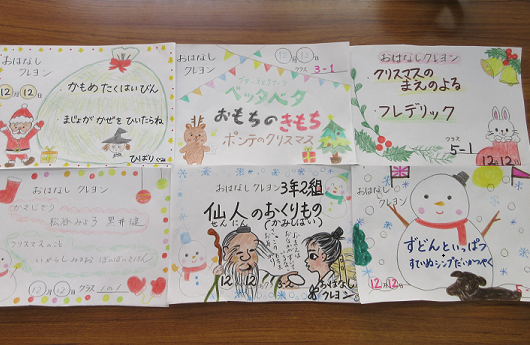 おはなし
クレヨン
12月12日
・かもめたくはいびん
・まじょがかぜをひいたらね
ひばり
おはなし
クレヨン
12月12日
クラス 3-1
ペッタペタ
おもちのきもち
ポンテのクリスマス
おはなしクレヨン
・クリスマスの
まえのよる
・フレデリック
クラス
5-1
12月12日
おはなし クレヨン
かさじぞう
松谷みよう 黒井健
12月12日
クラス
おはなし クレヨン 3年2組
仙人のおくりもの
せんにん (かみしばい)
12月12日
おはなし
クレヨン
おはなし
クレヨン
ずどんといっぱつ
すていぬシンプだいかつやく
12月12日